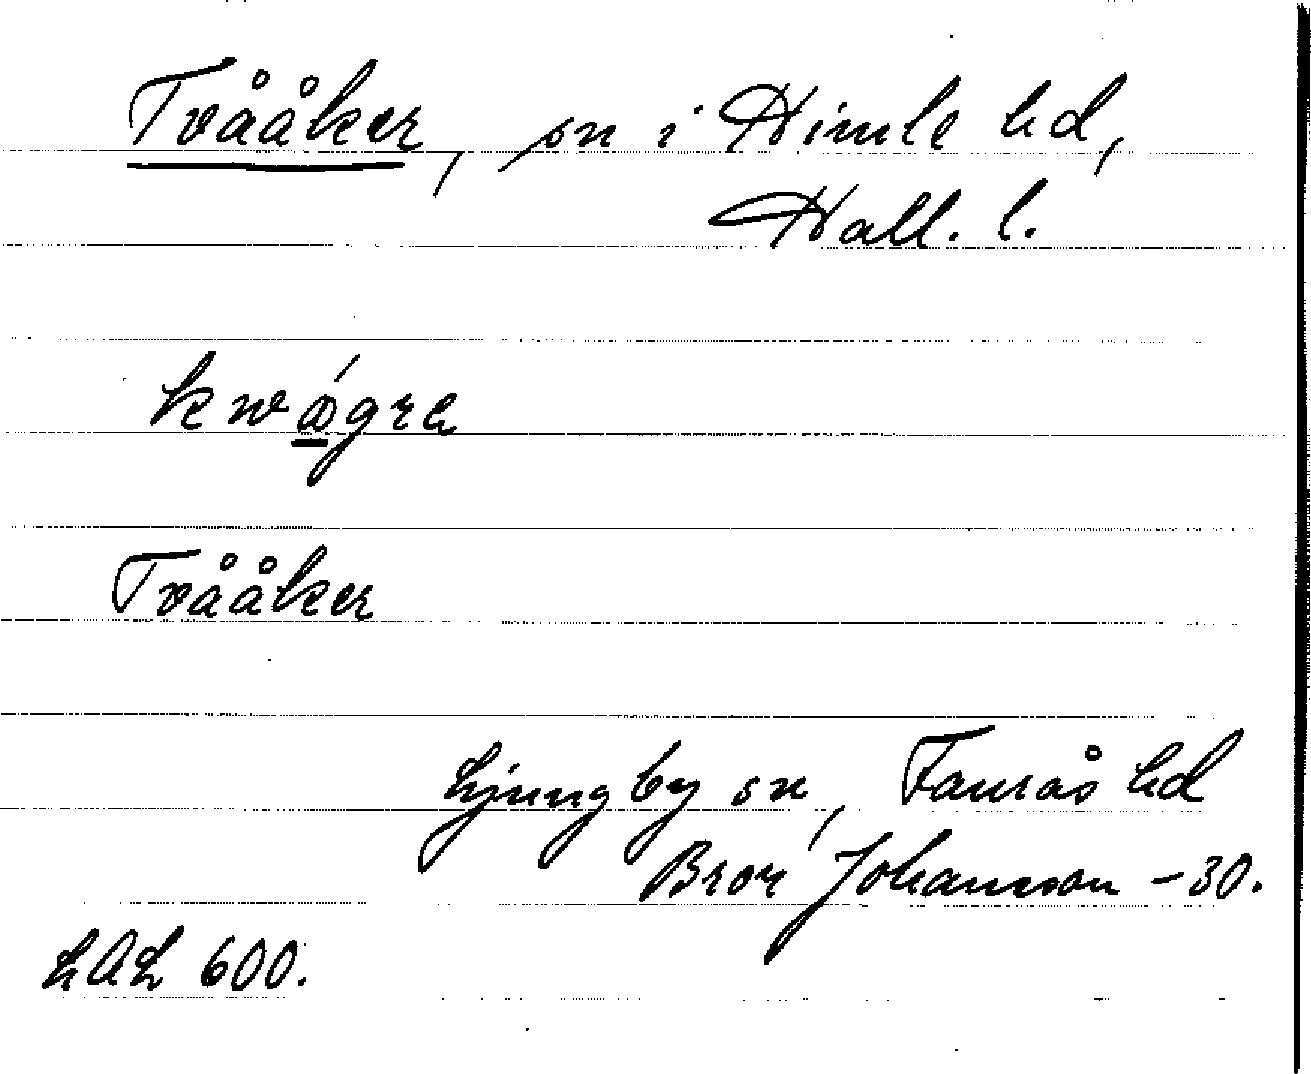 Tvååker, sn i Himle hd,
Hall. l.
Tvååker
Ljungby sn, Faurås hd
Bror Johansson -30.
LAL 600.